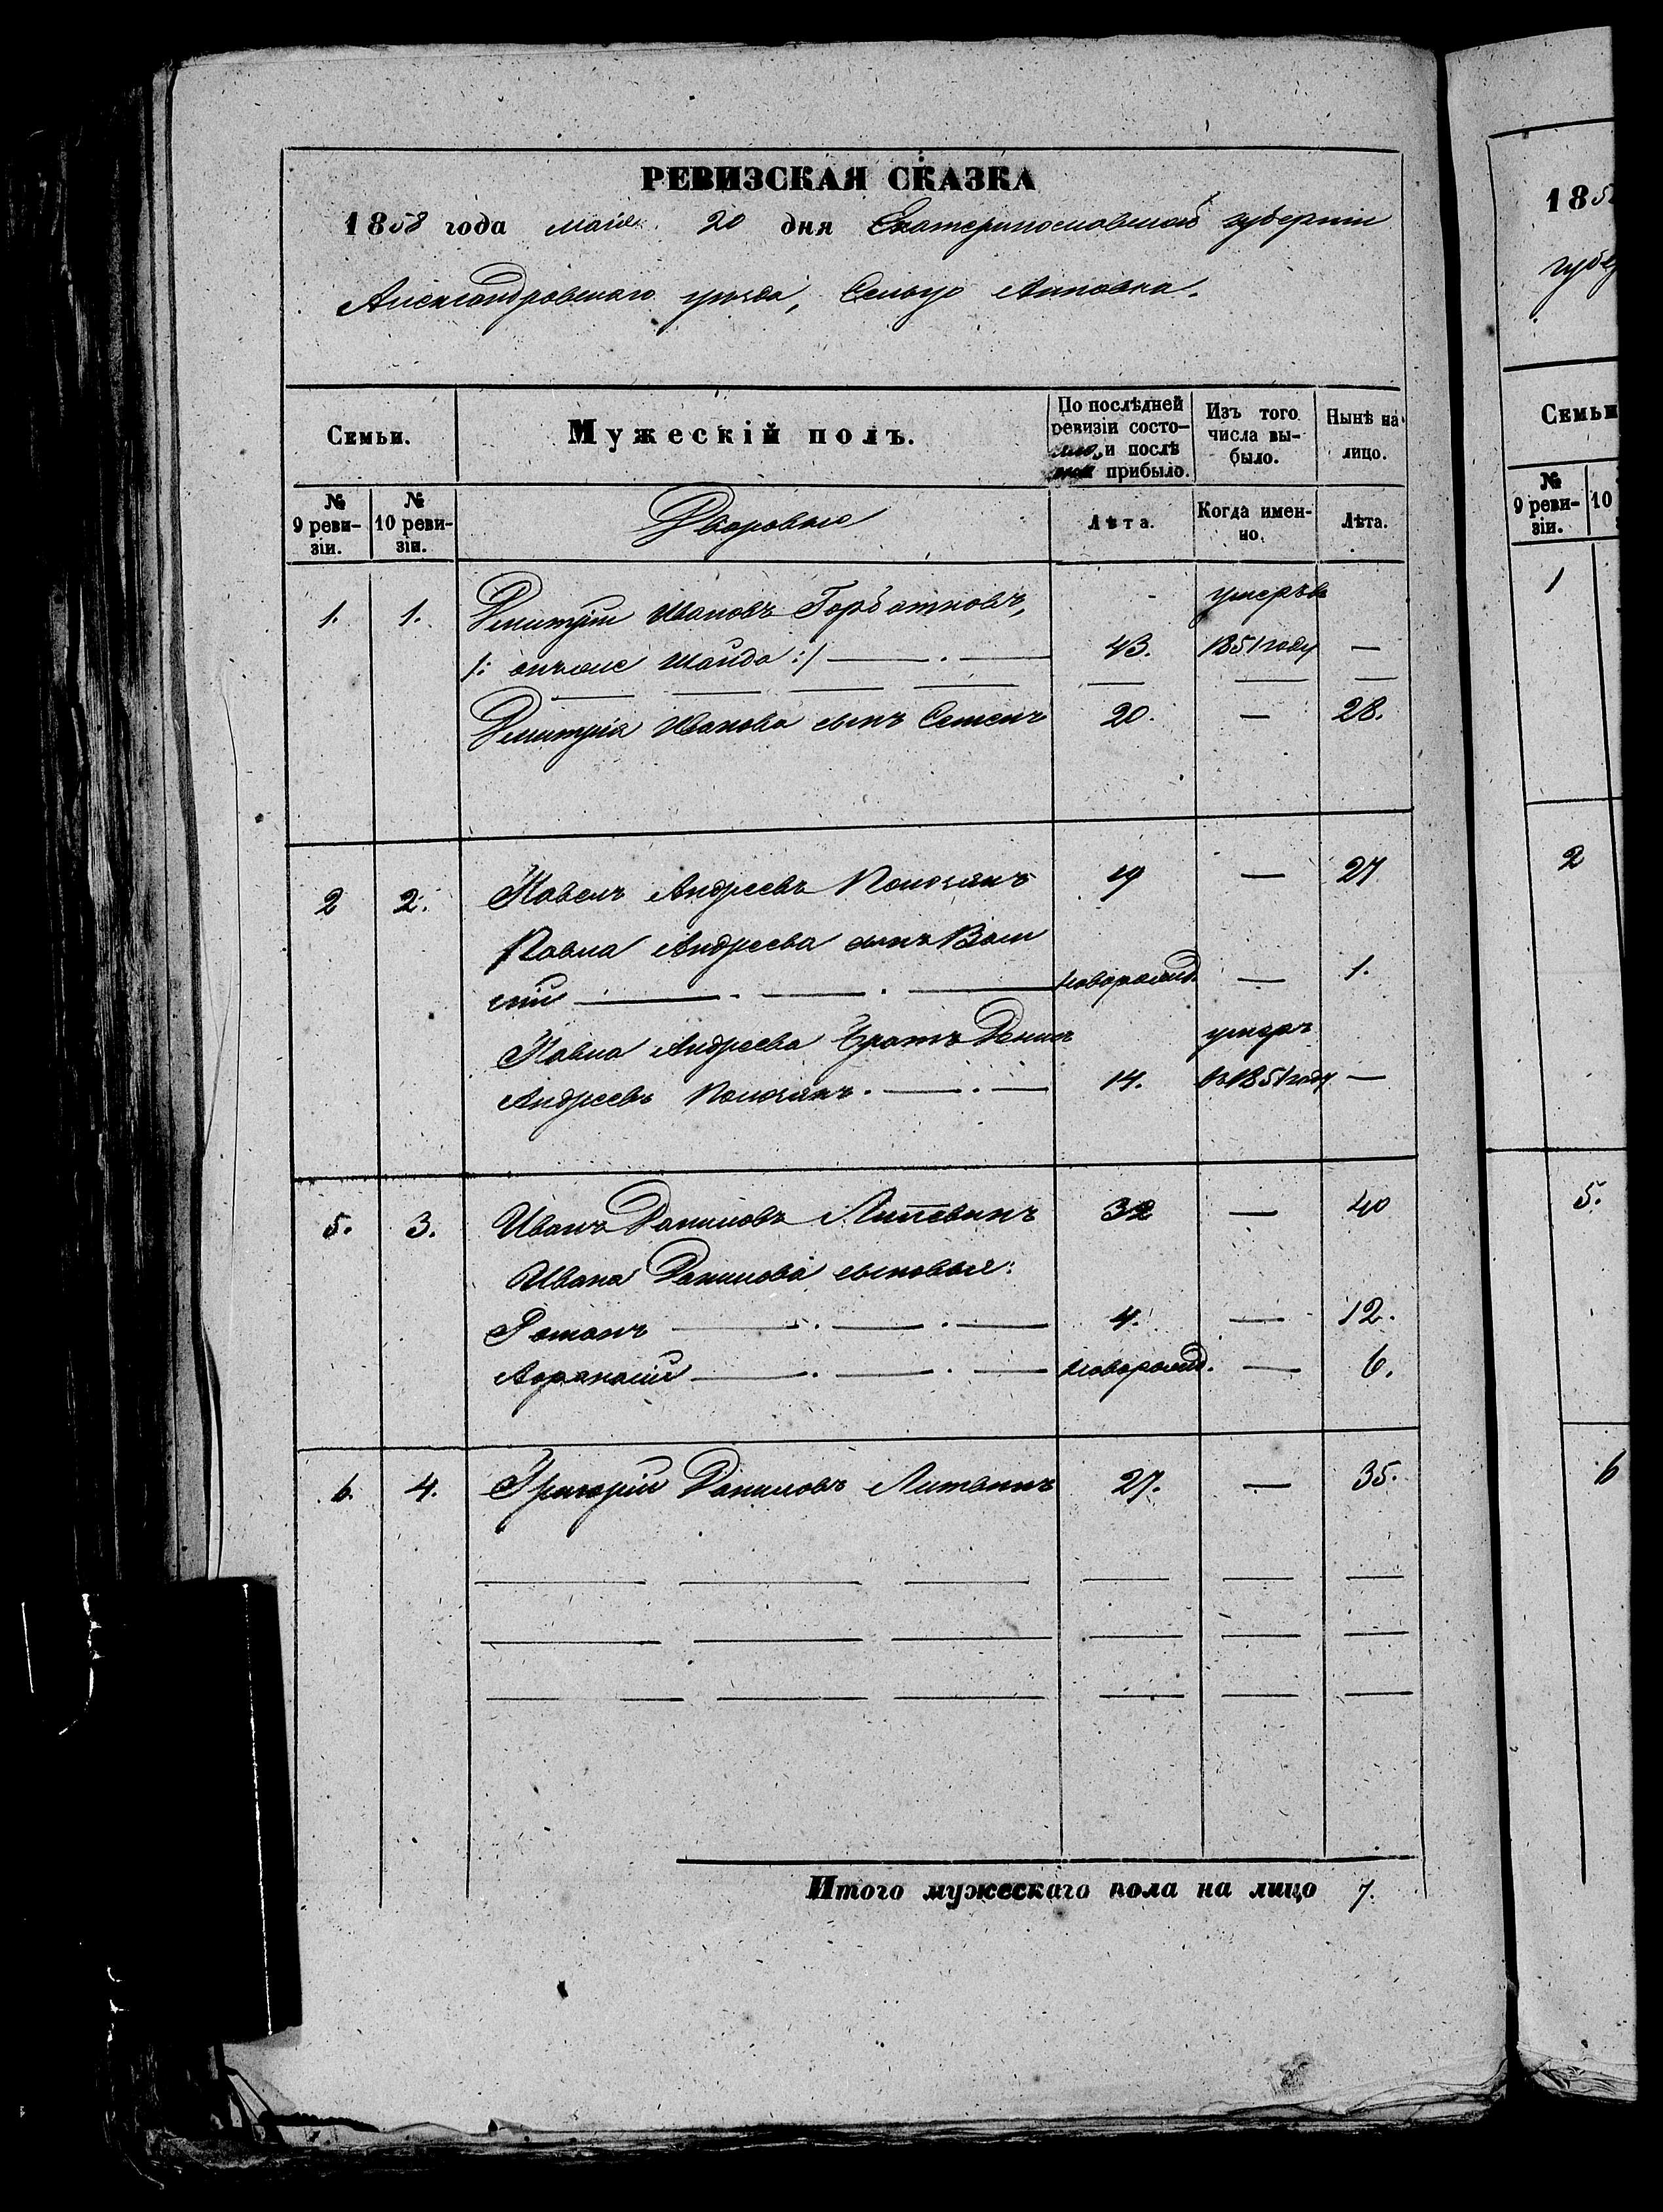 РЕВИЗСКАЯ СКАЗКА
1858 года мая 20 дня Екатеринославской губернiи
Александровскаго уѣзда, Сельцо Анновка.
Семьи.
Мужескiй полъ.
По послѣдней ревизiи состо-
и послѣ
прибыло.
Изъ того числа вы-
было.
Нынѣ на
лицо.
№ 9 реви-
зiи.
№ 10 реви-
зiи.
Дворовые
Лѣта.
Когда имен-
но.
Лѣта.
1. 1. Дмитрiй Ивановъ Горбатковъ, умеръ въ
/: онъ же Шайда :/ — . — 43. 1851 году —
Дмитрiя Иванова сынъ Семенъ 20. — 28.
2 2. Павелъ Андреевъ 19 — 27
Павла Андреева сынъ Васи
лiй — . — . — новорожд. — 1.
Павла Андреева братъ Денисъ умеръ
Андреевъ . — . — 14. въ 1851 году —
5. 3. Иванъ Даниловъ Литвинъ 32 — 40
Ивана Данилова сыновья:
Романъ — . — . — 4. — 12.
Афанасiй — . — . — новорожд. — 6.
6. 4. Григорiй Даниловъ Литвинъ 27. — 35.
Итого мужескаго пола на лицо 7.
185
губер
Семьи
№ 9 реви-
зiи.
10
1
2
5.
6